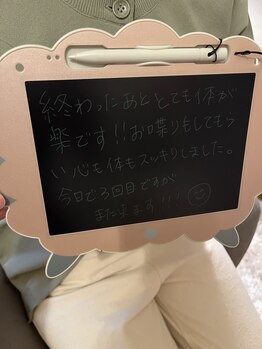 終わったあととても体が
楽です!!お喋りもしてもら
い心も体もスッキリしました。
今日で3回目ですが
また来ます!!!